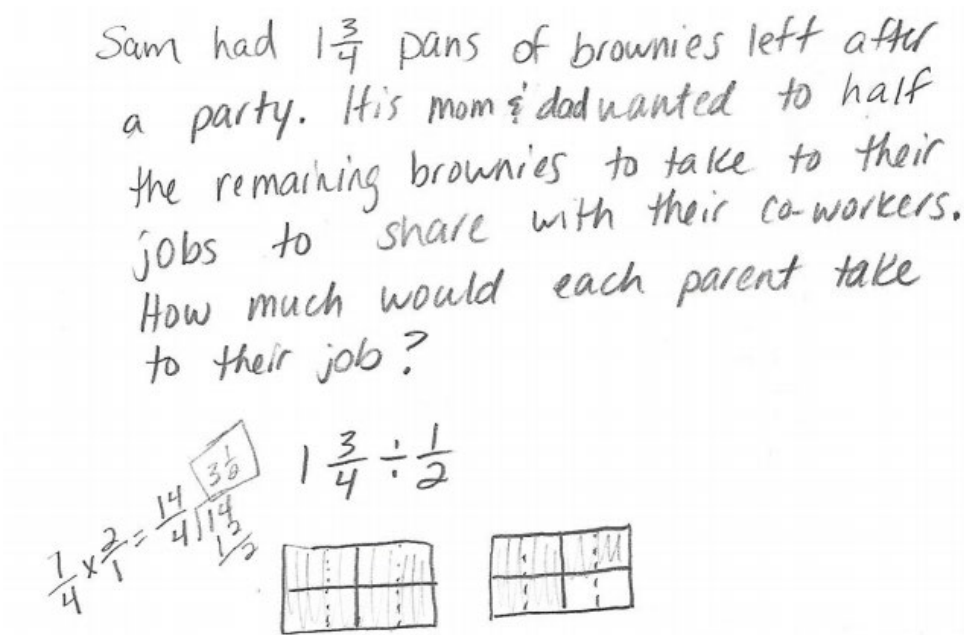 Sam had 1 3/4 pans of brownies left after
a party. His mom & dad wanted to half
the remaining brownies to take to their
jobs to share with their co-workers.
How much would each parent take
to their job?
1 3/4 ÷ 1/2
7/4 × 2/1 = 14/4
3 1/2
4)14
12
2